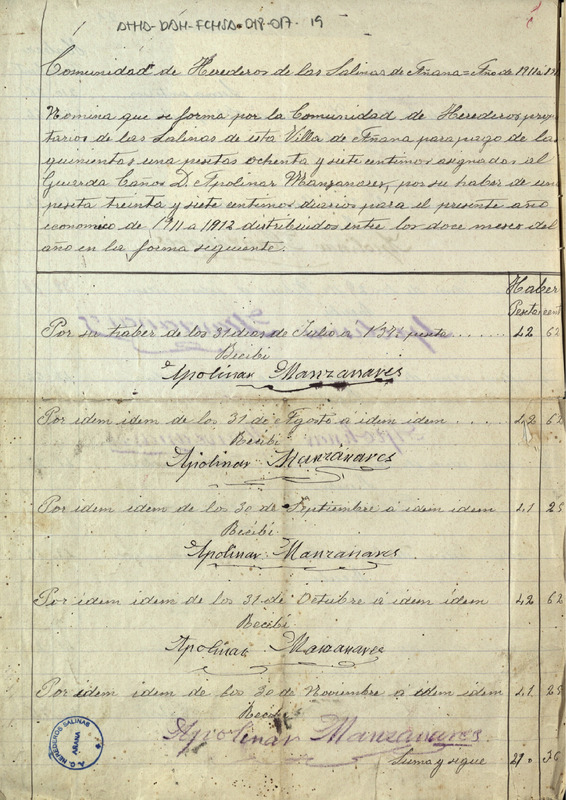 ATHA-DAH-FCHSA-018-017. 19
Comunidad de Herederos de las Salinas de Añana = Año de 1911 a 191
Nomina que se forma por la Comunidad de Herederos propie
tarios de las Salinas de esta Villa de Añana para pago de las
quinientas una pesetas ochenta y siete centimos asignadas al
Guarda Caños D. Apolinar Manzanares, por su haber de una
peseta treinta y siete centimos diarios para el presente año
economico de 1911 a 1912 distribuidos entre los doce meses del
año en la forma seguiente.
Haber
Pesetas cent
Por su haber de los 31 dias de Julio a 1'37½ peseta ...... 42 62
Recibi
Apolinar Manzanares
Por idem idem de los 31 de Agosto á idem idem .... 42 62
Recibi
Apolinar Manzanares
Por idem idem de los 30 de Septiembre á idem idem 41 25
Recibi
Apolinar Manzanares
Por idem idem de los 31 de Octubre á idem idem 42 62
Recibi
Apolinar Manzanares
Por idem idem de los 30 de Noviembre á idem idem 41 25
Recibi
Apolinar Manzanares
Suma y sigue 210 36
HEREDEROS SALINAS
AÑANA